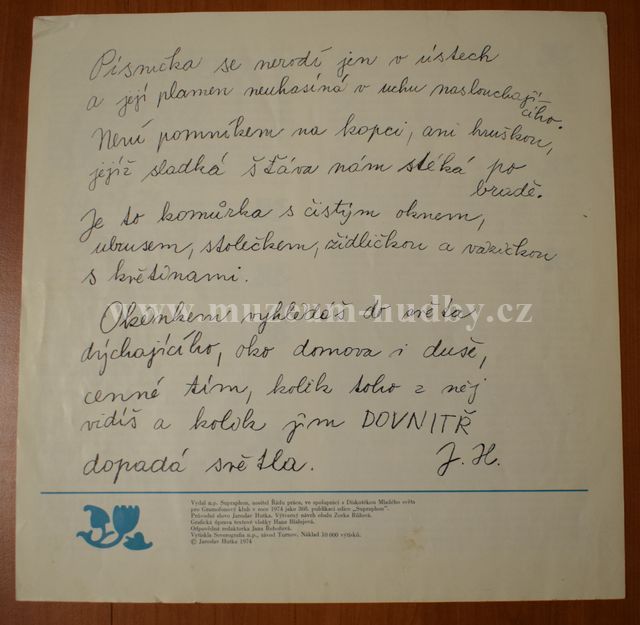 Písnička se nerodí jen v ústech
a její plamen neuhasíná v uchu naslouchají-
cího.
Není pomníkem na kopci, ani hruškou,
jejíž sladká šťáva nám stéká po
bradě.
Je to komůrka s čistým oknem,
ubrusem, stolečkem, židličkou a vázičkou
s květinami.
Okénkem vyhlédáš do světa
www.muzeum-hudby.cz
dýchajícího, oko domova i duše,
cenné tím, kolik toho z něj
vidíš a kolik jím DOVNITŘ
dopadá světla. J. H.
Vydal n.p. Supraphon, nositel Řádu práce, ve spolupráci s Diskotékou Mladého světa
pro Gramofonový klub v roce 1974 jako 360. publikaci edice „Supraphon".
Průvodní slovo Jaroslav Hutka. Výtvarný návrh obalu Zorka Růžová.
Grafická úprava textové vložky Hana Blažejová.
Odpovědná redaktorka Jana Řehořová.
Vytiskla Severografia n.p., závod Turnov. Náklad 10 000 výtisků.
© Jaroslav Hutka 1974